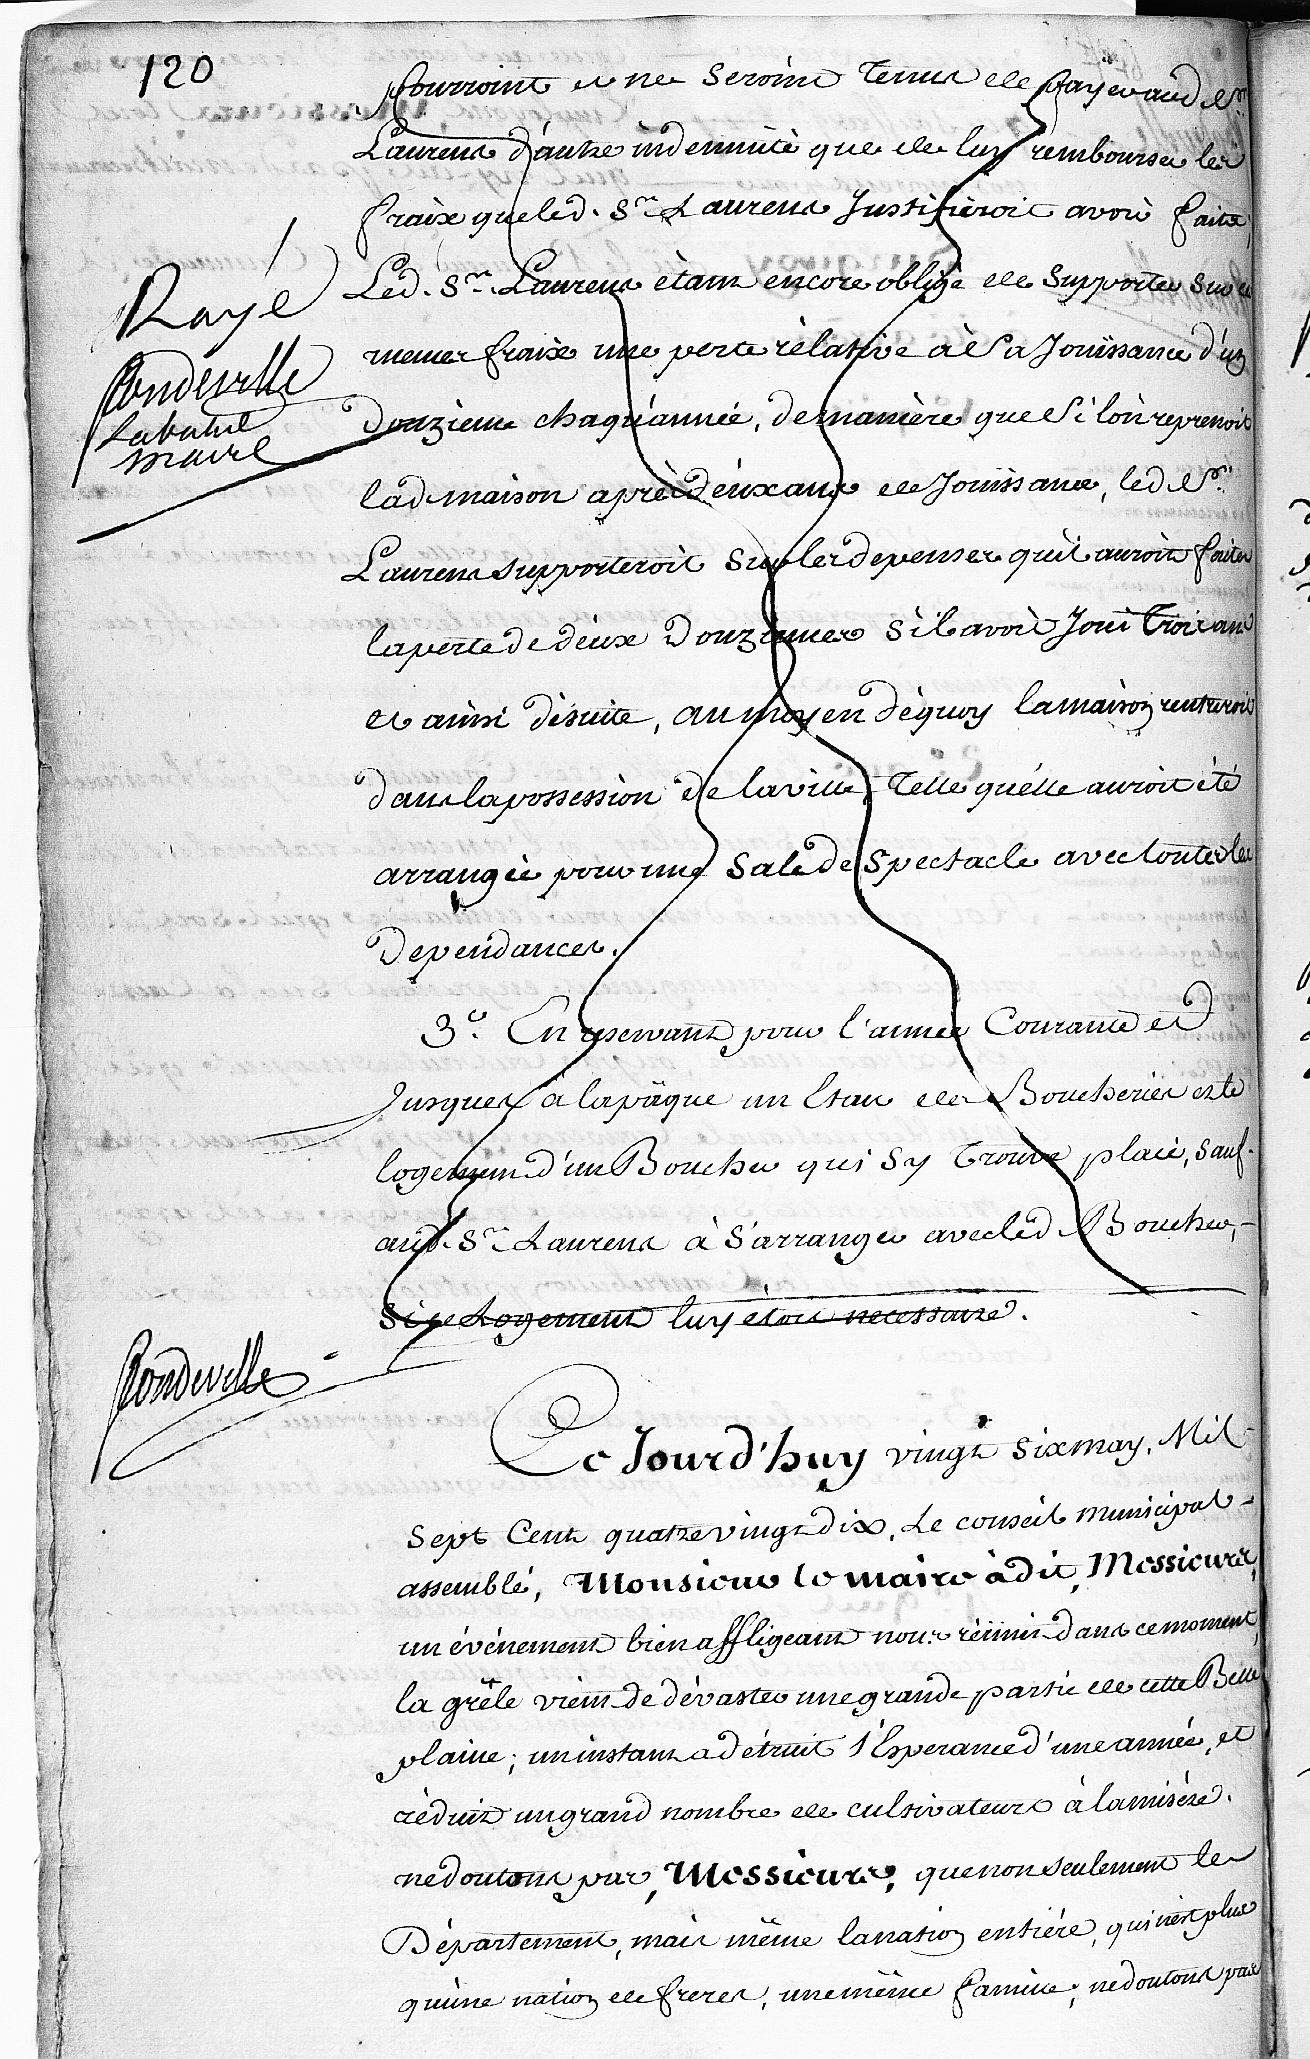 120
pourroint et ne seroint tenus de payer aud Sr.
Laurens d'autre indemnité que de luy rembourser les
fraix que led. Sr. Laurens Justifieroit avoir faits,
Led. Sr. Laurens étant encore obligé de supporter sur ces
memes fraix une perte rélative à sa Jouissance d'un
Rayé
Douzieme chaqu'année, de maniére que si lon reprenoit
Rondeville
Labatut
maire
lad maison aprés deux ans de Jouissance, led Sr.
Laurens supporteroit sur les depenses qu'il auroit faites
la perte de deux Douziemes s'il avoit Joui trois ans
et ainsi désuite, au moyen déquoy la maison rentreroit
dans la possession de la ville, Telle qu'elle auroit été
arrangée pour une Sale de Spectacle avec toutes les
Dependances.
3°. En reservant pour l'année Courante et
Jusques à la pâque un Etau de Boucheries et le
logement d'un Boucher qui sy trouve placé, sauf
aud. Sr. Laurens à s'arranger avec led Boucher,
si ce Logement luy étoit necessaire.
Rondeville
Ce Jourd'huy vingt six may, Mil
Sept Cent quatre vingt dix, Le conseil municipal
assemblé, Monsieur le maire à dit, Messieurs,
un événement bien affligeant nous réünit dans ce moment,
la grêle vient de dévaster une grande partie de cette Belle
plaine; un instant a détruit l'Esperance d'une année, et
réduit un grand nombre de cultivateurs à la misére.
ne doutons pas, Messieurs, que non seulement le
Département, mais même la nation entiére, qui n'est plus
qu'une nation de freres, une même famille, ne doutons pas